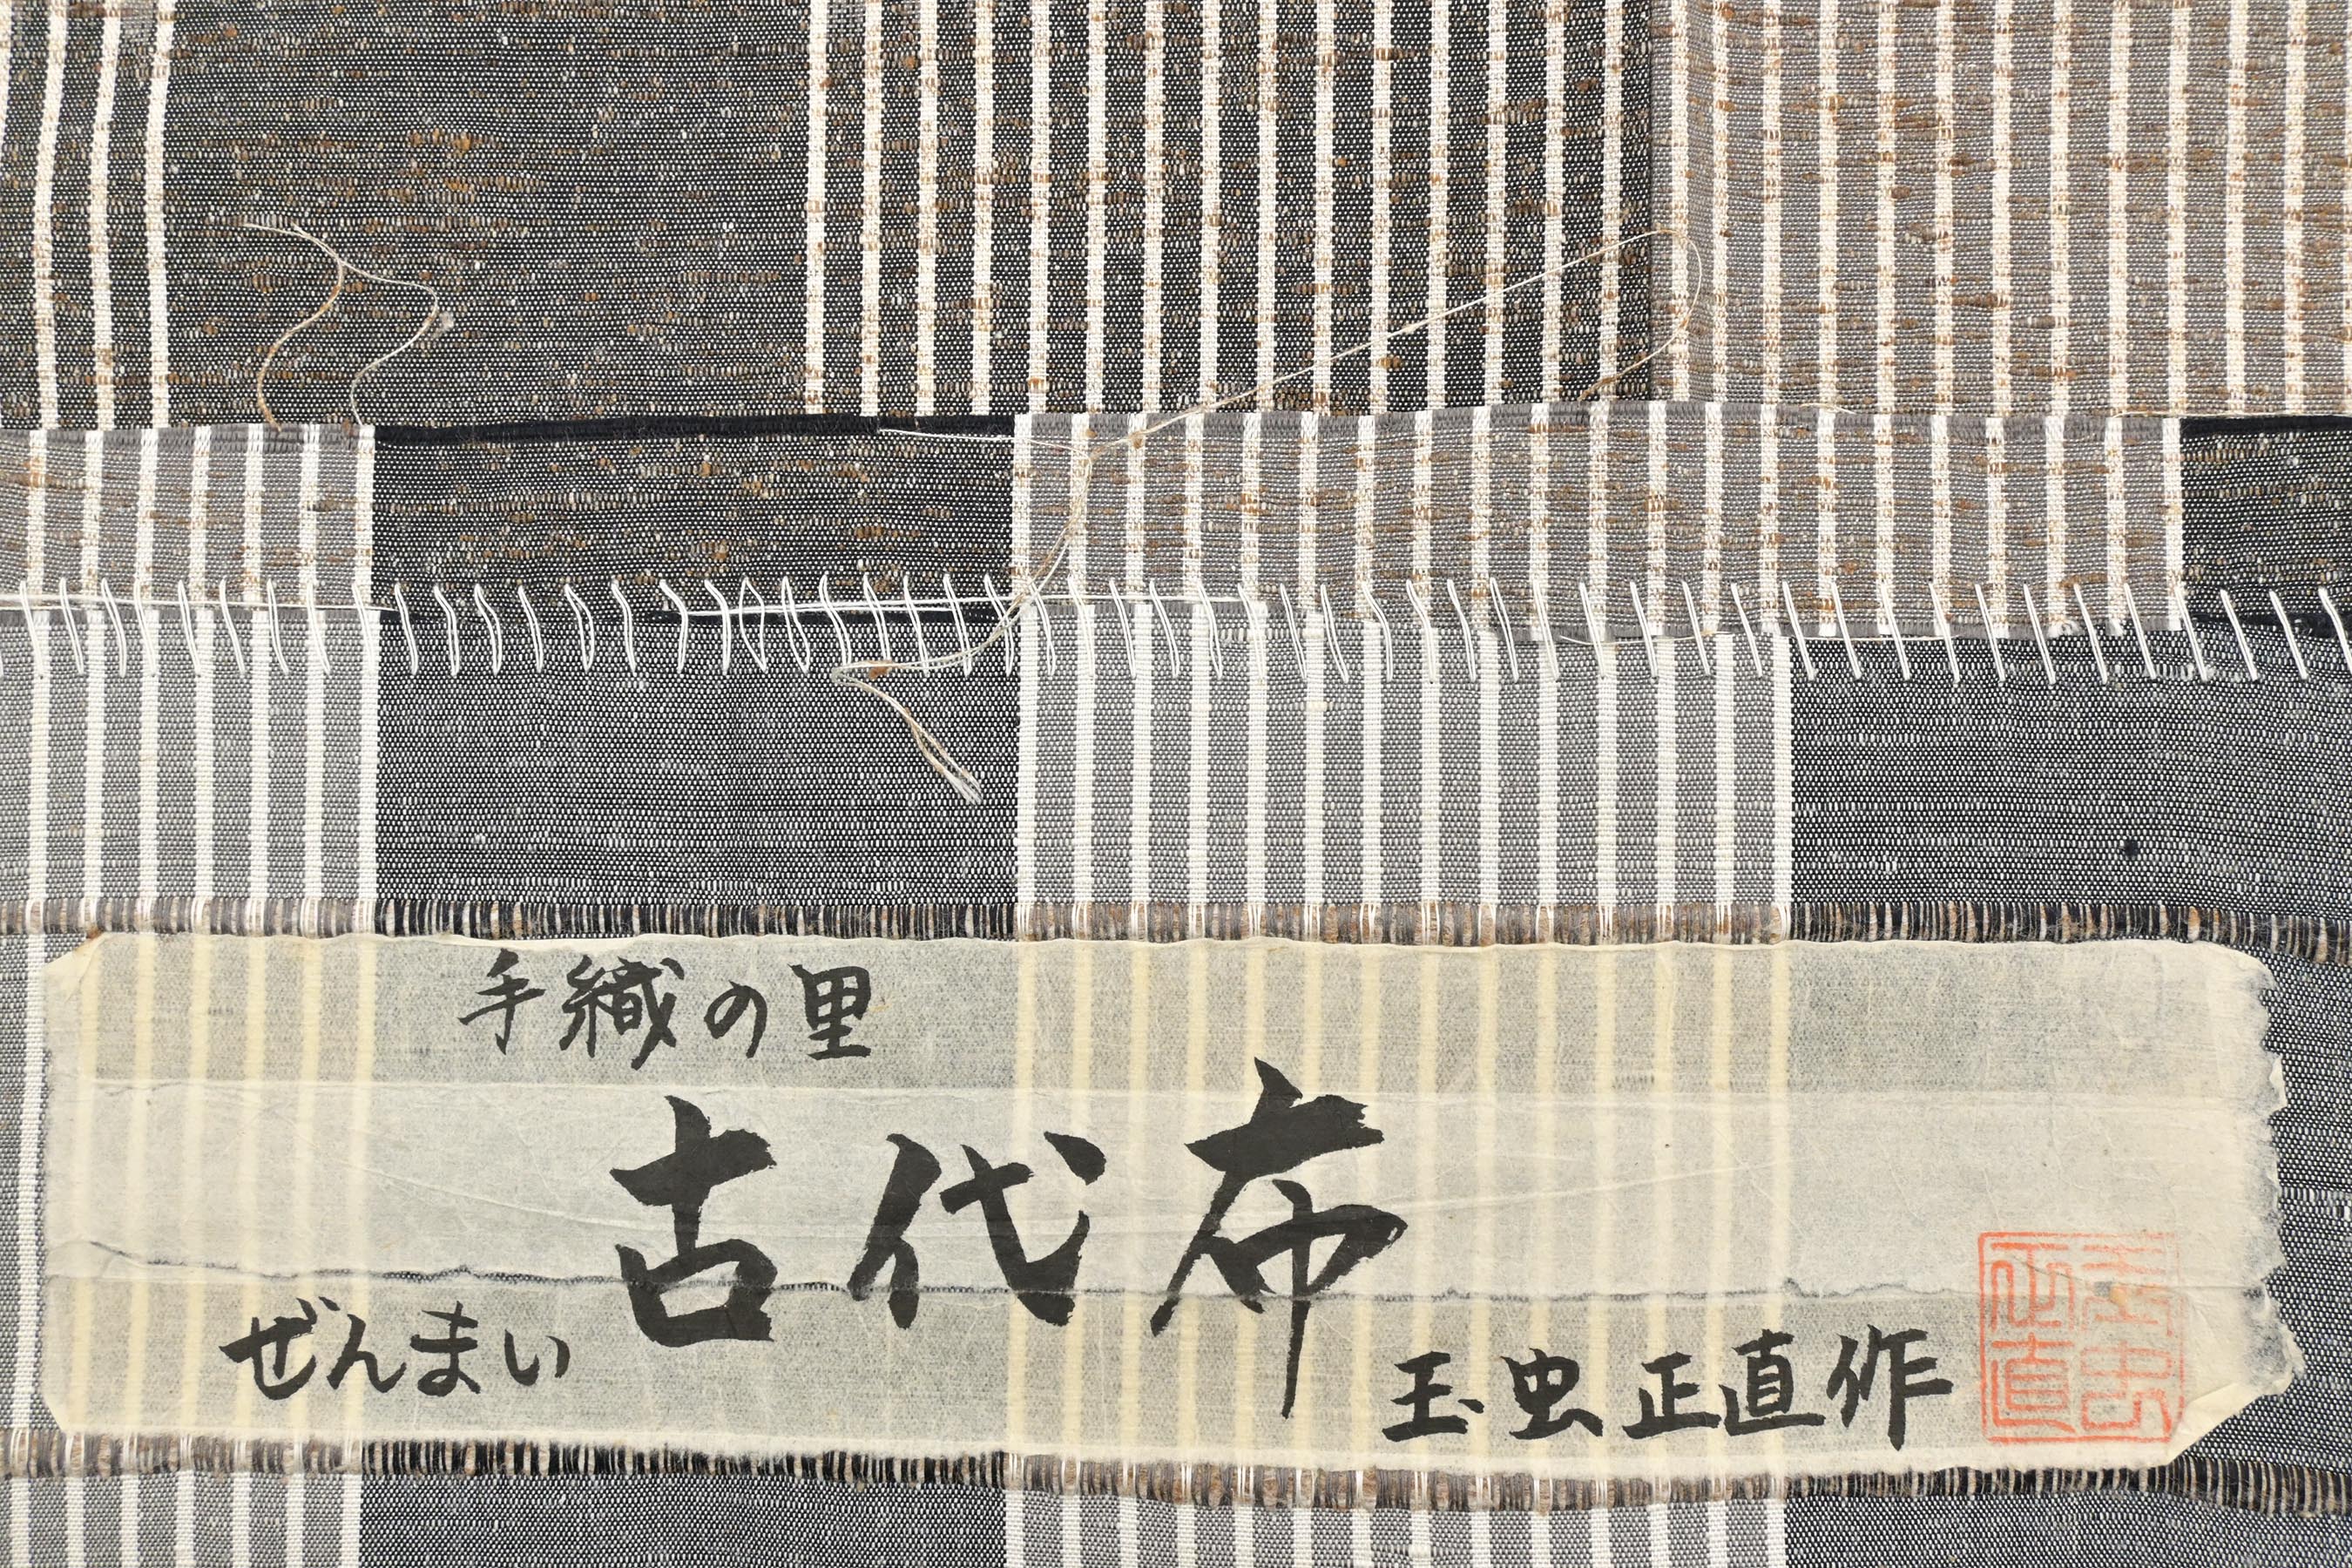 手織の里
古代布
ぜんまい
玉虫正直作
玉虫
正直